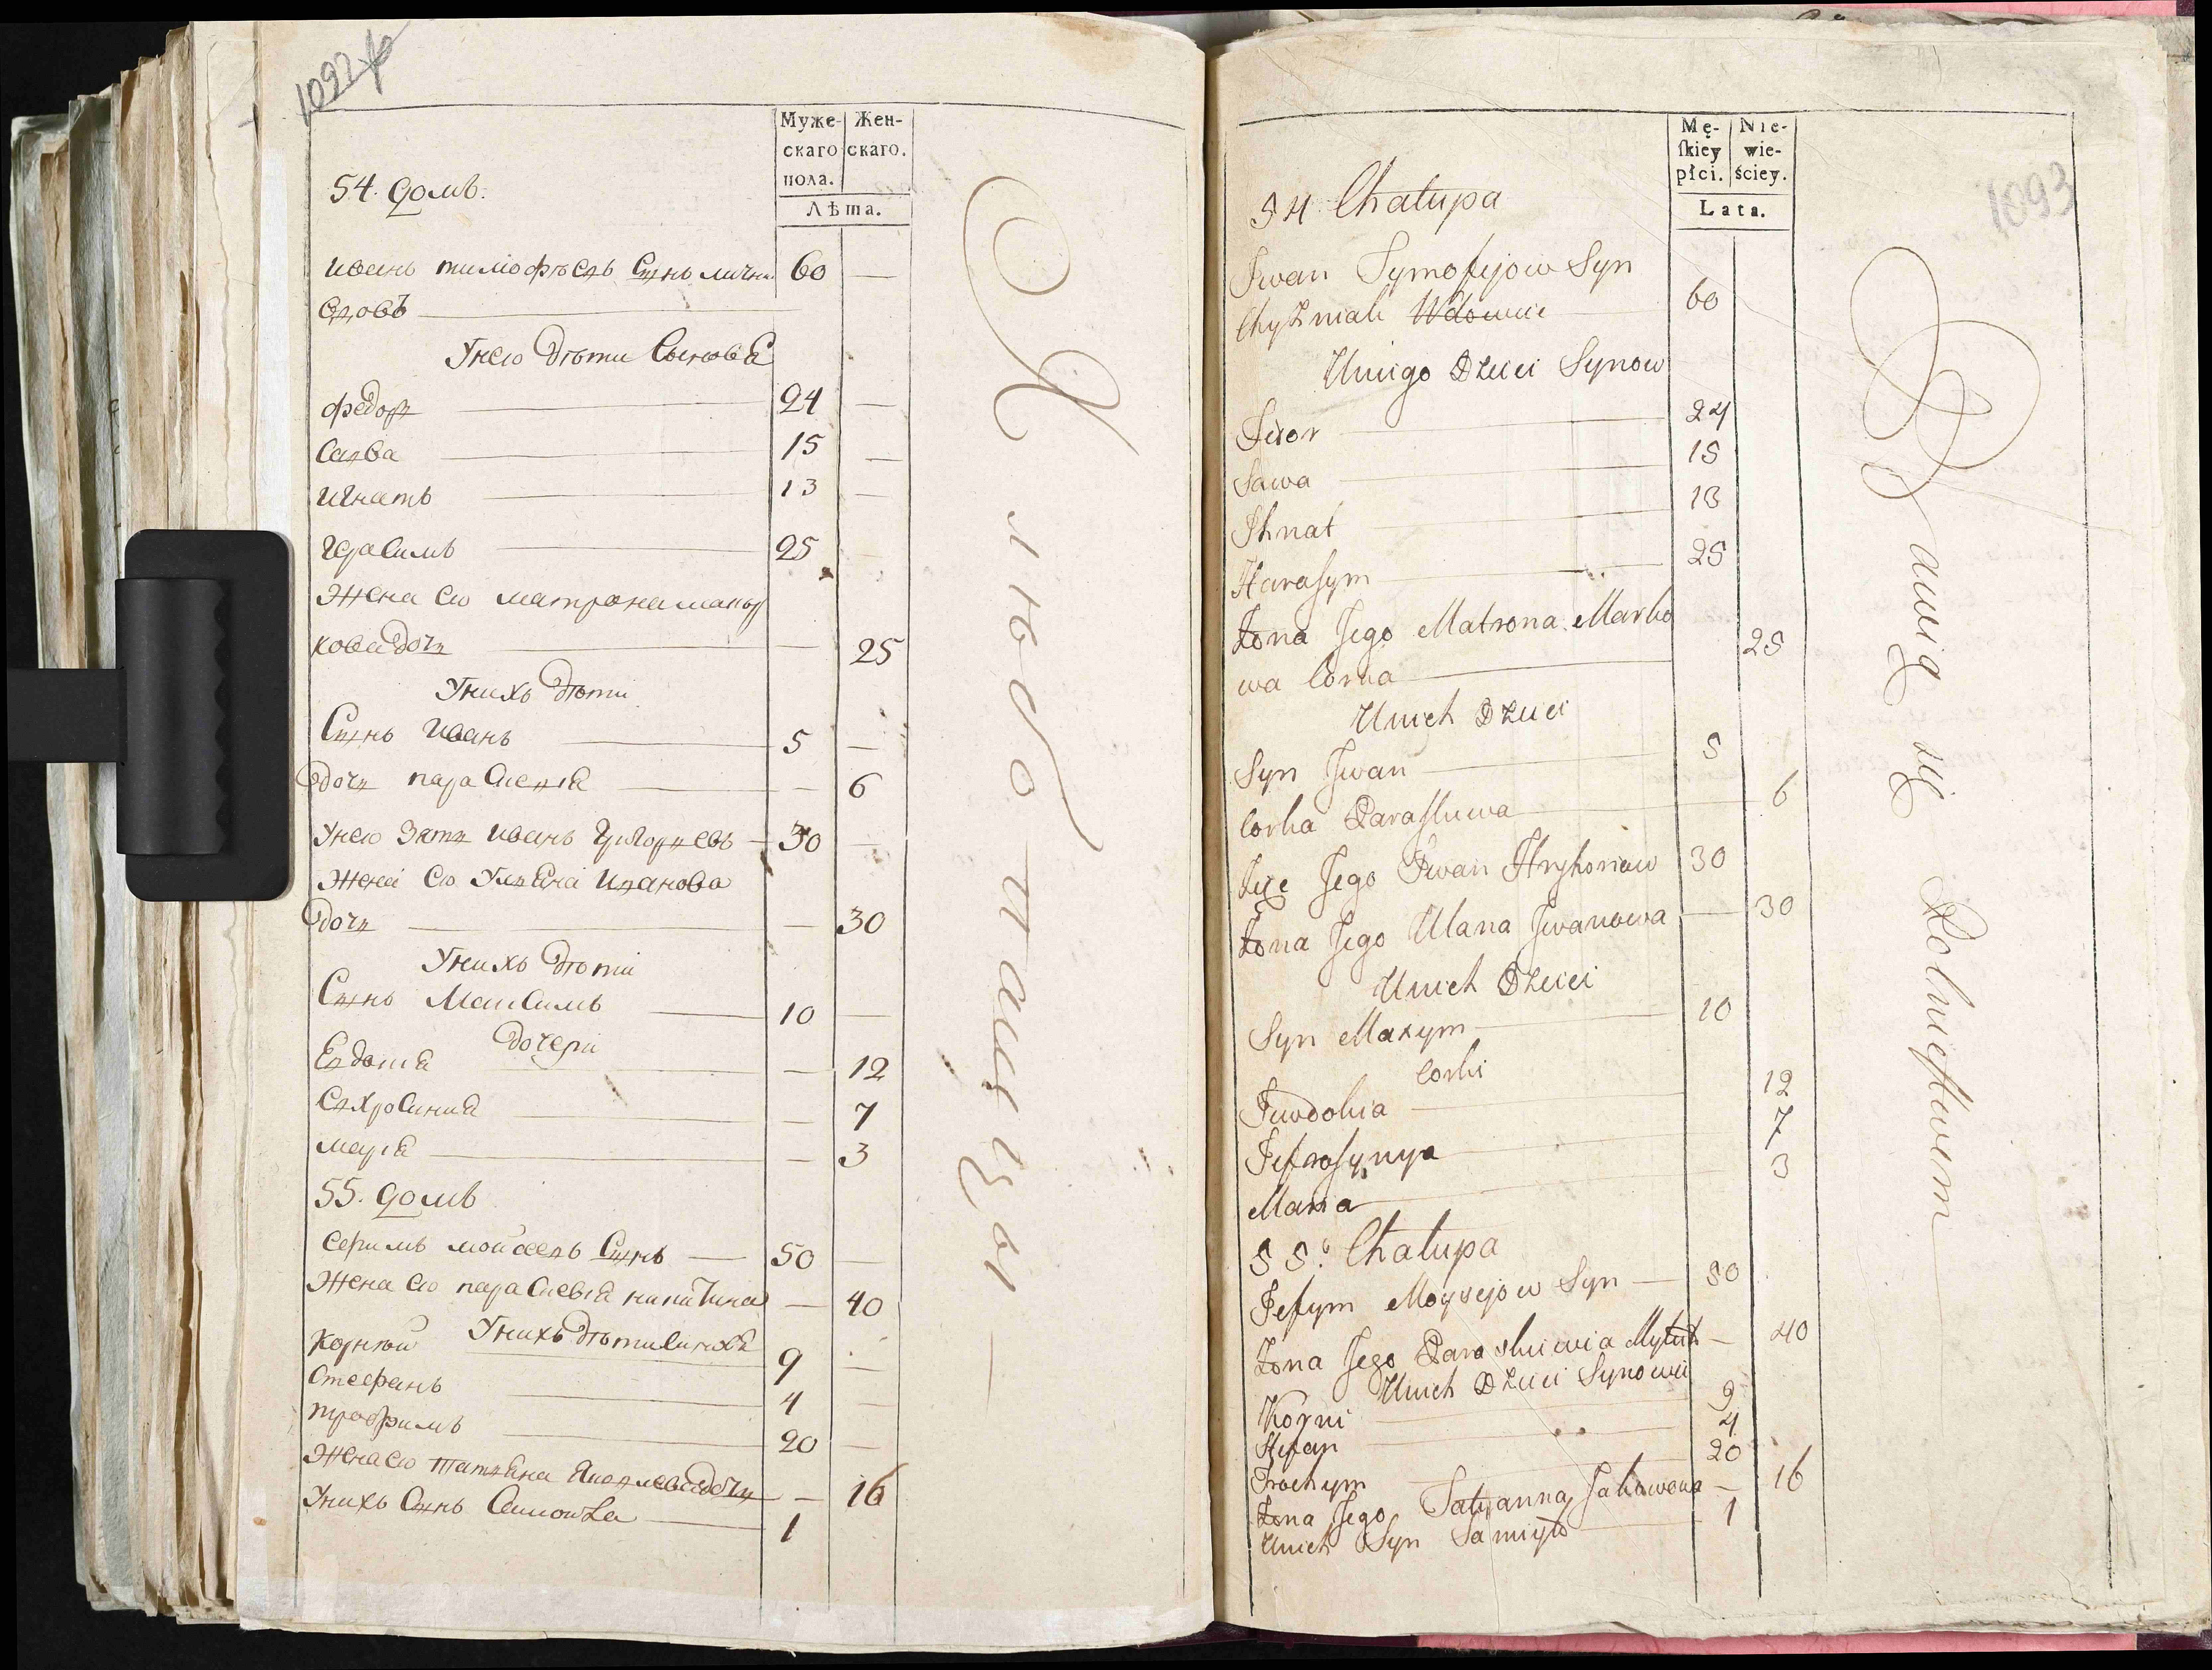 1092
Муже-
скаго
пола.
Жен-
скаго.
Лѣта.
54. домъ.
иванъ тимофѣевъ Сынъ 60 —
вдовъ
Унего Дѣти Сыновя
федор 24 —
Савва 15 —
игнатъ 13 —
герасимъ 25 —
Жена его матрона марь
кова дочь — 25
Унихъ Дѣти
Сынъ иванъ 5 —
дочь параскевія — 6
Унего Зять иванъ григорьевъ 30 —
Жена его Ульяна иванова
дочь — 30
Унихъ Дѣти
Сынъ Максимъ 10 —
дочери
Евдокія — 12
Евхросинія — 7
марія — 3
55. домъ
Ефимъ мойсеевъ Сынъ — 50 —
Жена его параскевія никитина — 40
Унихъ Дѣти Сыновя
Корнѣй 9 —
Стефанъ 4 —
трофимъ 20 —
Жена его татьяна Яковлева дочь — 16
Унихъ Сынъ Самойла 1
Хлѣбопашцы
1093
Mę-
skiey
płci.
Nie-
wie-
ściey.
Lata.
54 Chałupa
Jwan Tymofejow Syn
Chyżniak Wdowiec 60
Uniego Dzieci Synow
Fedor 24
Sawa 15
Ihnat 13
Harasym 25
Żona Jego Matrona Marko
wa Corka 25
Unich Dzieci
Syn Jwan 5
Corka Paraskiwa 6
Zięć Jego Jwan Hryhoriow 30
Żona Jego Ulana Jwanowa — 30
Unich Dzieci
Syn Maxym 10
Corki
Juwdokia 12
Jefrosynya 7
Maria 3
55. Chałupa
Jefym Moysejow Syn — 50
Żona Jego Paraskiewia — 40
Unich Dzieci Synowie
Korni 9
Stefan 4
Trochym 20
Żona Jego Tatyanna Jakowowa — 16
Unich Syn Samiyło 1
Bawią się Rolnictwem